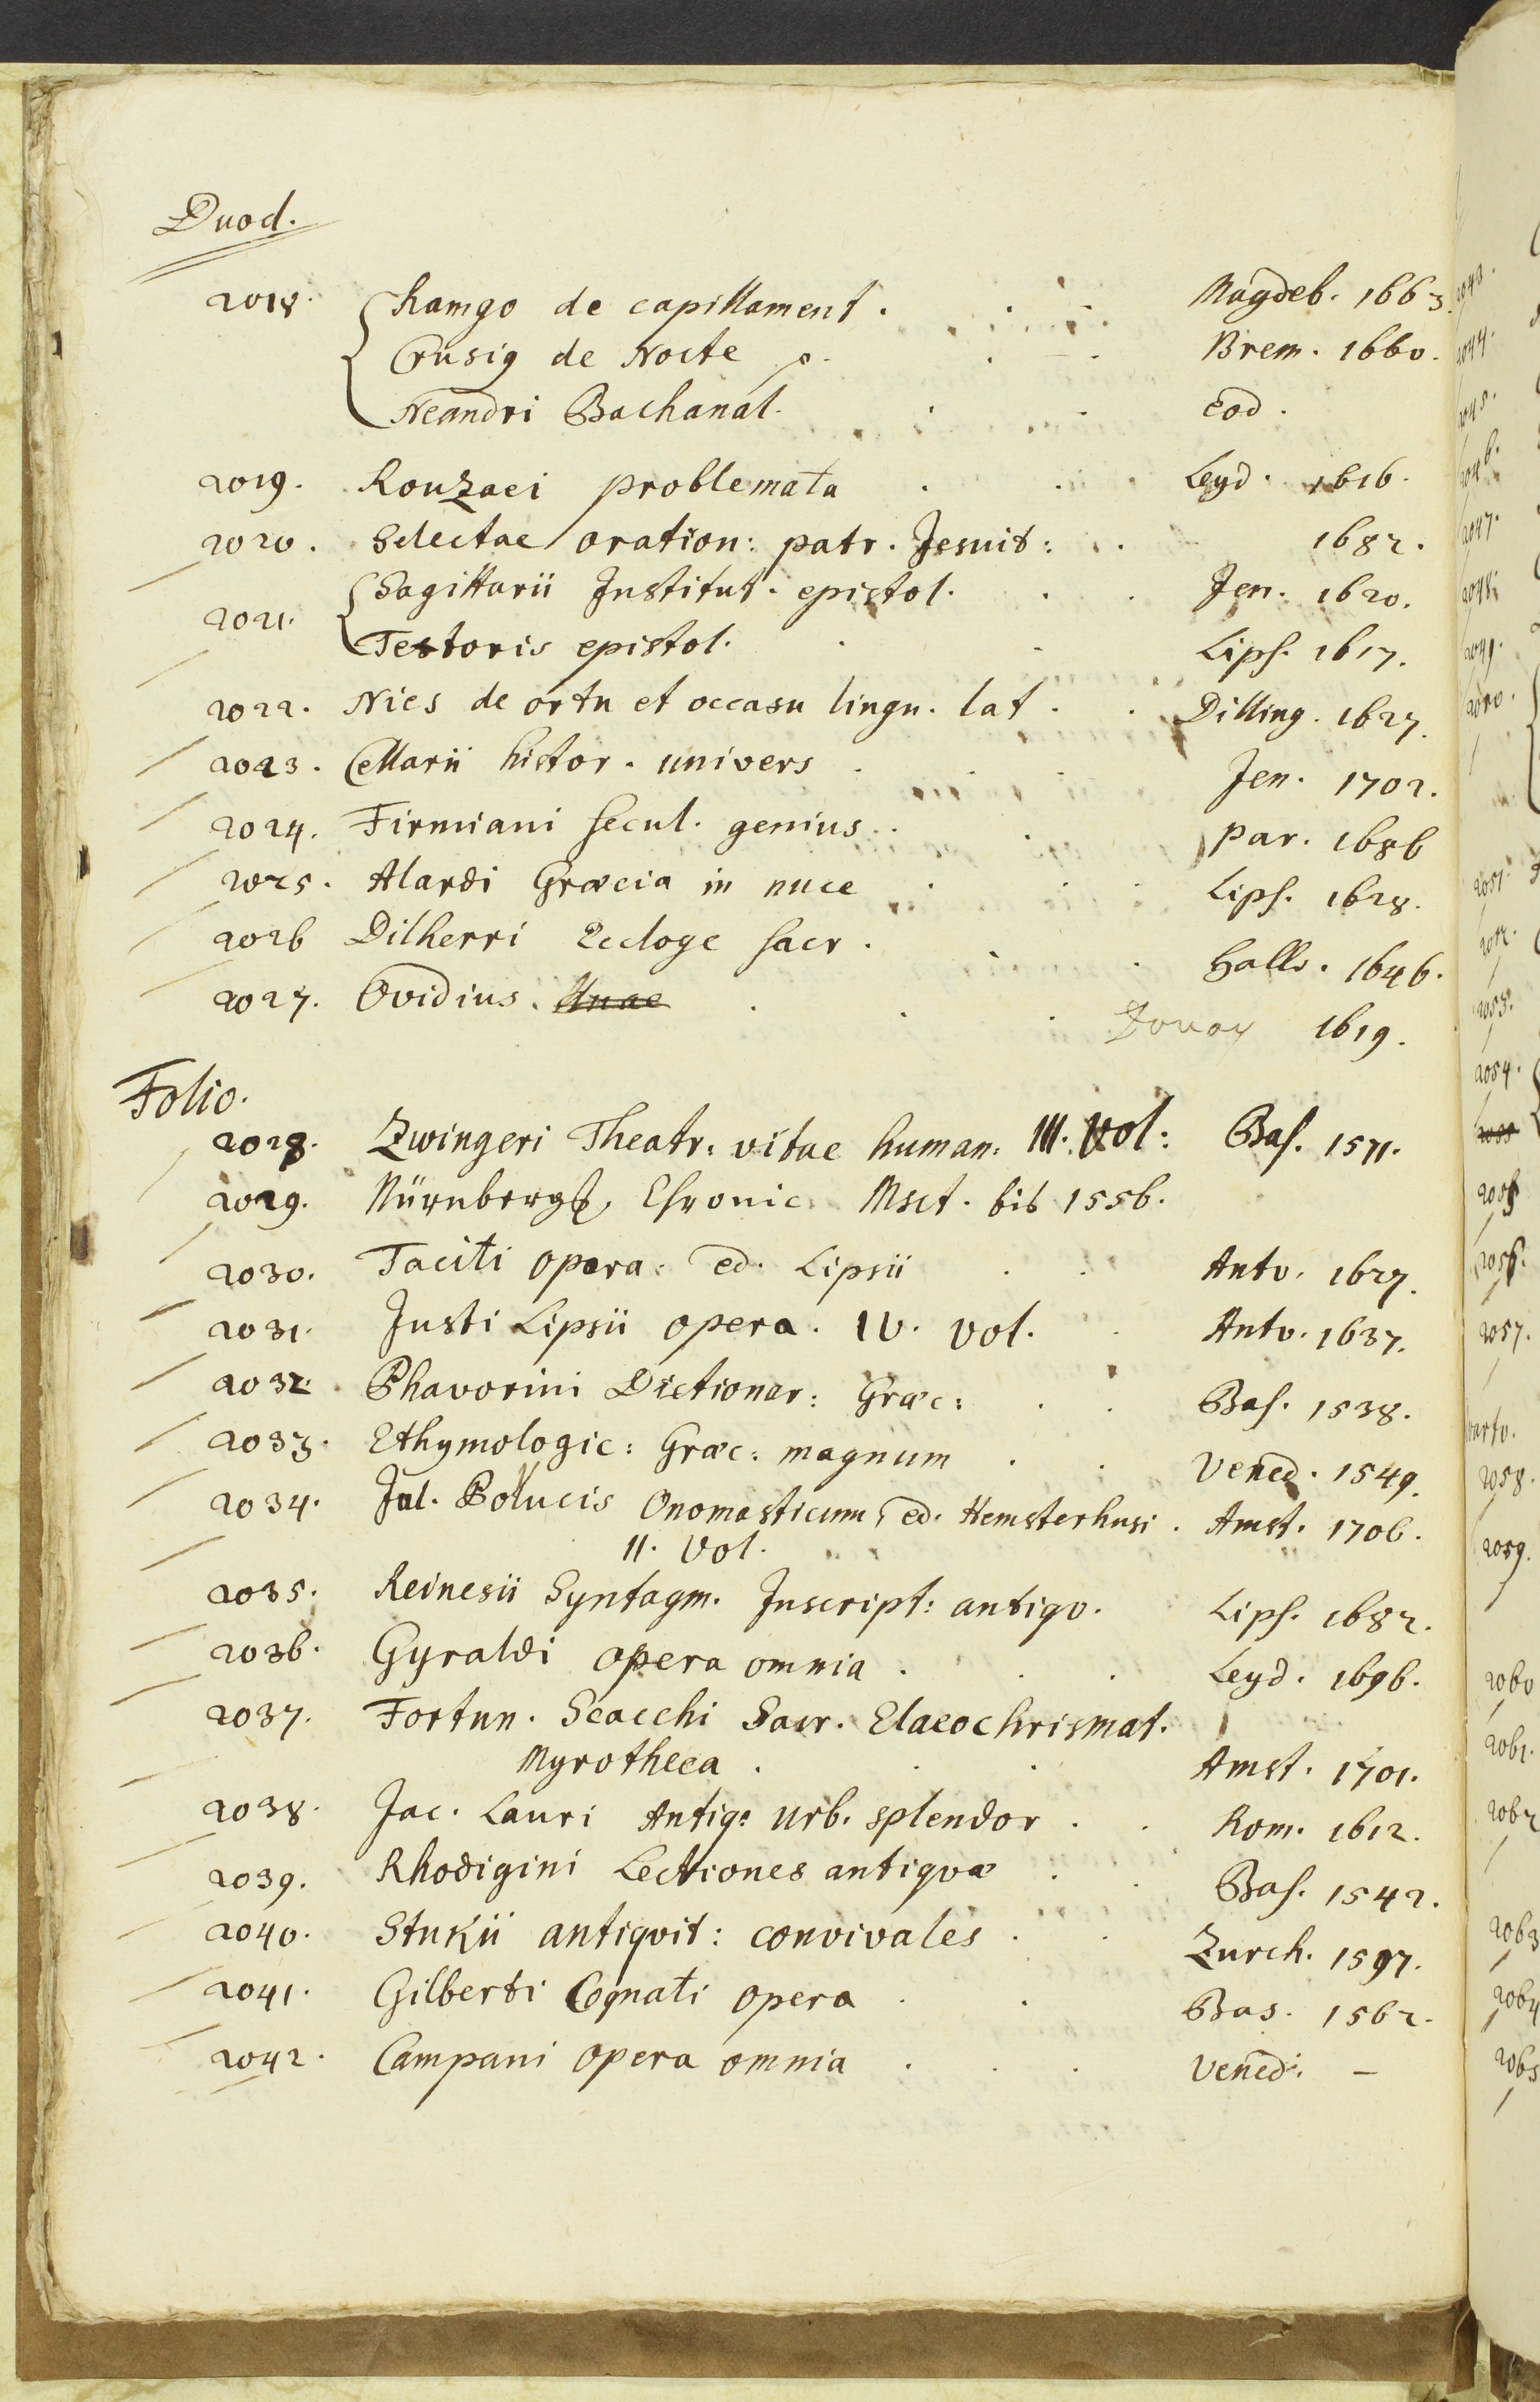 Duod.
2018. Ramgo de capillament. Magdeb. 1663.
Crusig de Nocte p. Brem. 1660.
Neandri Bachanal. Eod.
2019. Rouzaei problemata Leyd. 1616.
2020. Selectae oration: patr. Jesuit: 1682.
2021. Sagittarii Institut. epistol. Jen. 1620.
Textoris epistol. Lips. 1617.
2022. Nies de ortu et occasu lingu. lat. Dilling. 1627.
2023. Cellarii histor. univers Jen. 1702.
2024. Firmiani secul. genius. Par. 1686
2025. Alardi Græcia in nuce Lips. 1628.
2026 Dilherri Ecloge sacr. Halls. 1646.
2027. Ovidius. Douay 1619.
Folio.
2028. Zwingeri Theatr: vitae human: III. Vol: Bas. 1571.
2029. Nürnberg. Chronic. Msct. bis 1556.
2030. Taciti opera. ed. Lipsii Antv. 1627.
2031. Justi Lipsii opera. IV. vol. Antv. 1637.
2032. Phavorini Dictionar: Græc: Bas. 1538.
2033. Ethymologic: Græc: magnum Vened. 1549.
2034. Jul. Pollucis Onomasticum, ed. Hemsterhusi. Amst. 1706.
II. Vol.
2035. Reinesii Syntagm. Inscript: antiqv. Lips. 1682.
2036. Gyraldi opera omnia. Leyd. 1696.
2037. Fortun. Scacchi Sacr. Elaeochrismat.
Myrotheca. Amst. 1701.
2038. Jac. Lauri Antiq: Urb. splendor. Rom. 1612.
2039. Rhodigini Lectiones antiqvæ Bas. 1542.
2040. Stukii antiqvit: convivales. Zurch. 1597.
2041. Gilberti Cognati opera. Bas. 1562.
2042. Campani opera omnia. Vened. –
2043.
2044.
2045.
2046.
2047.
2048.
2049.
2050.
2051.
2052.
2053.
2054.
2056.
2057.
2058.
2059.
2060
2061.
2062
2063
2064
2065